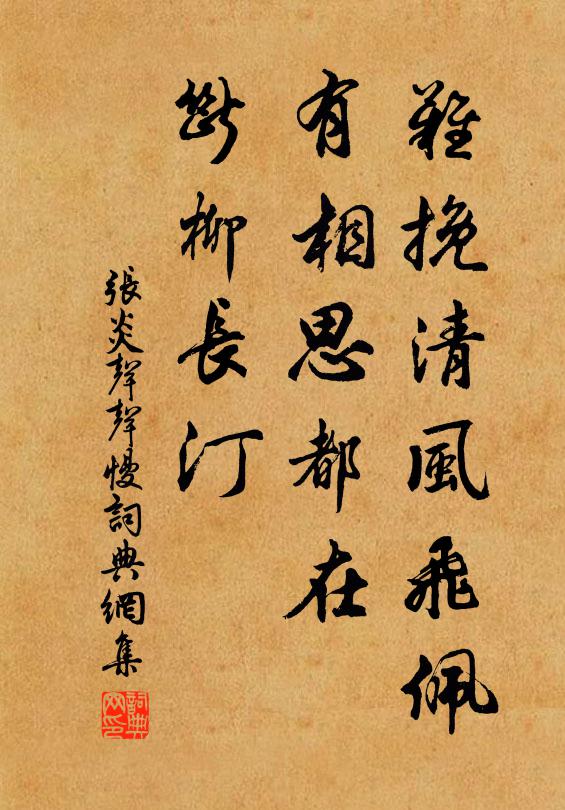 難挽清風飛佩
有相思都在
斷柳長汀
張炎聲聲慢詞典網集
詞典網印